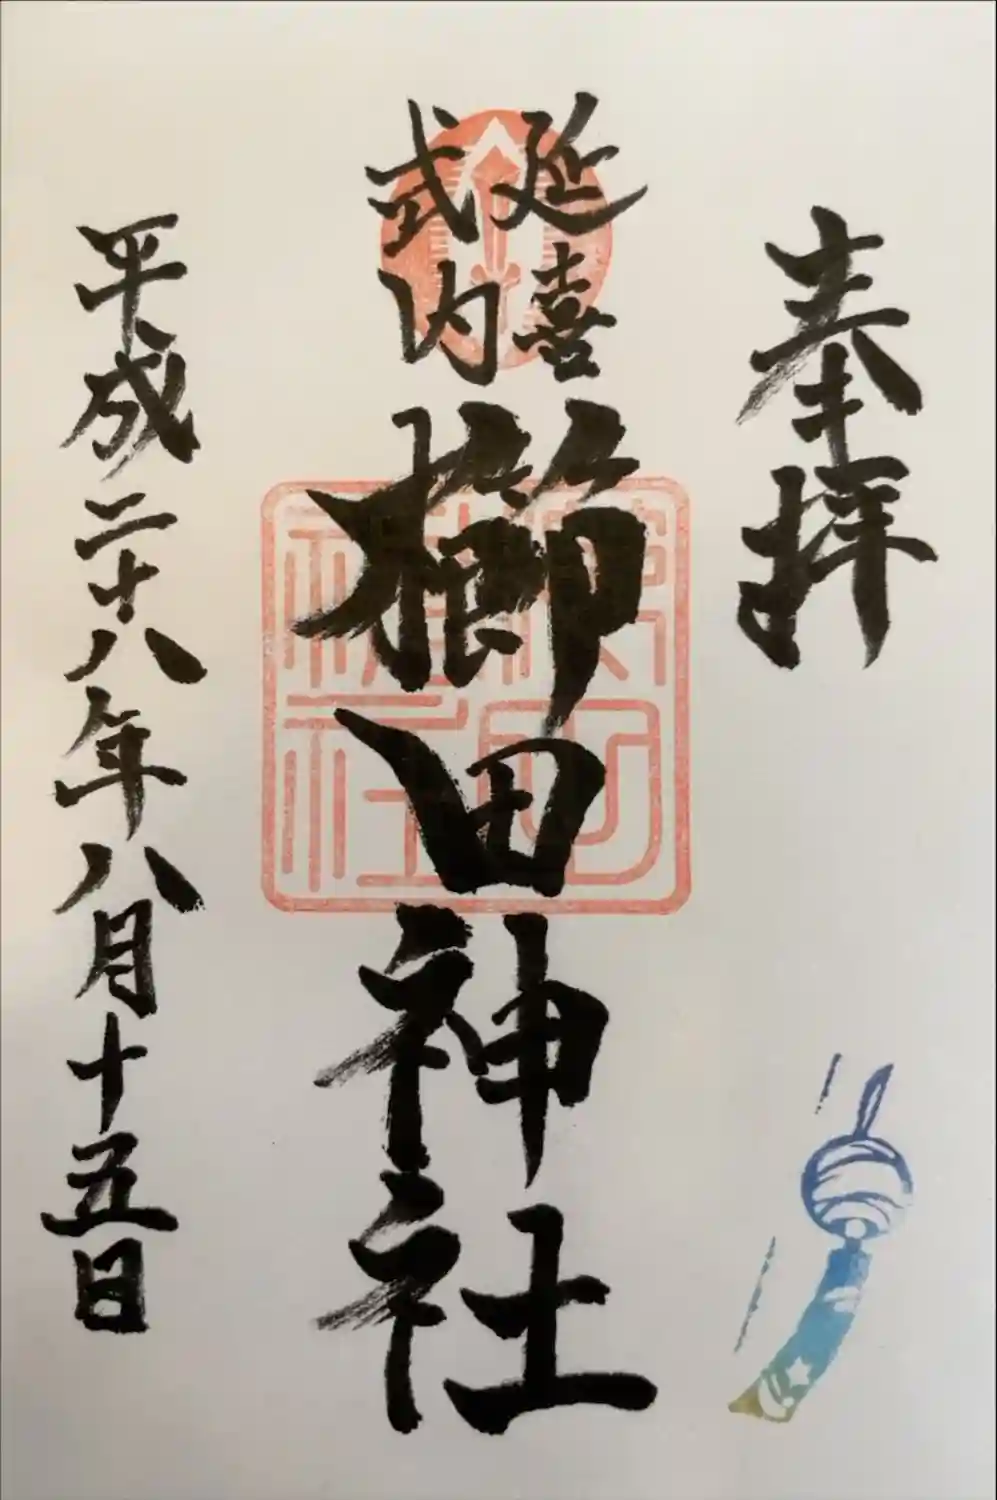 奉拝
延喜
式内
櫛田神社
平成二十八年八月十五日
櫛田
神社